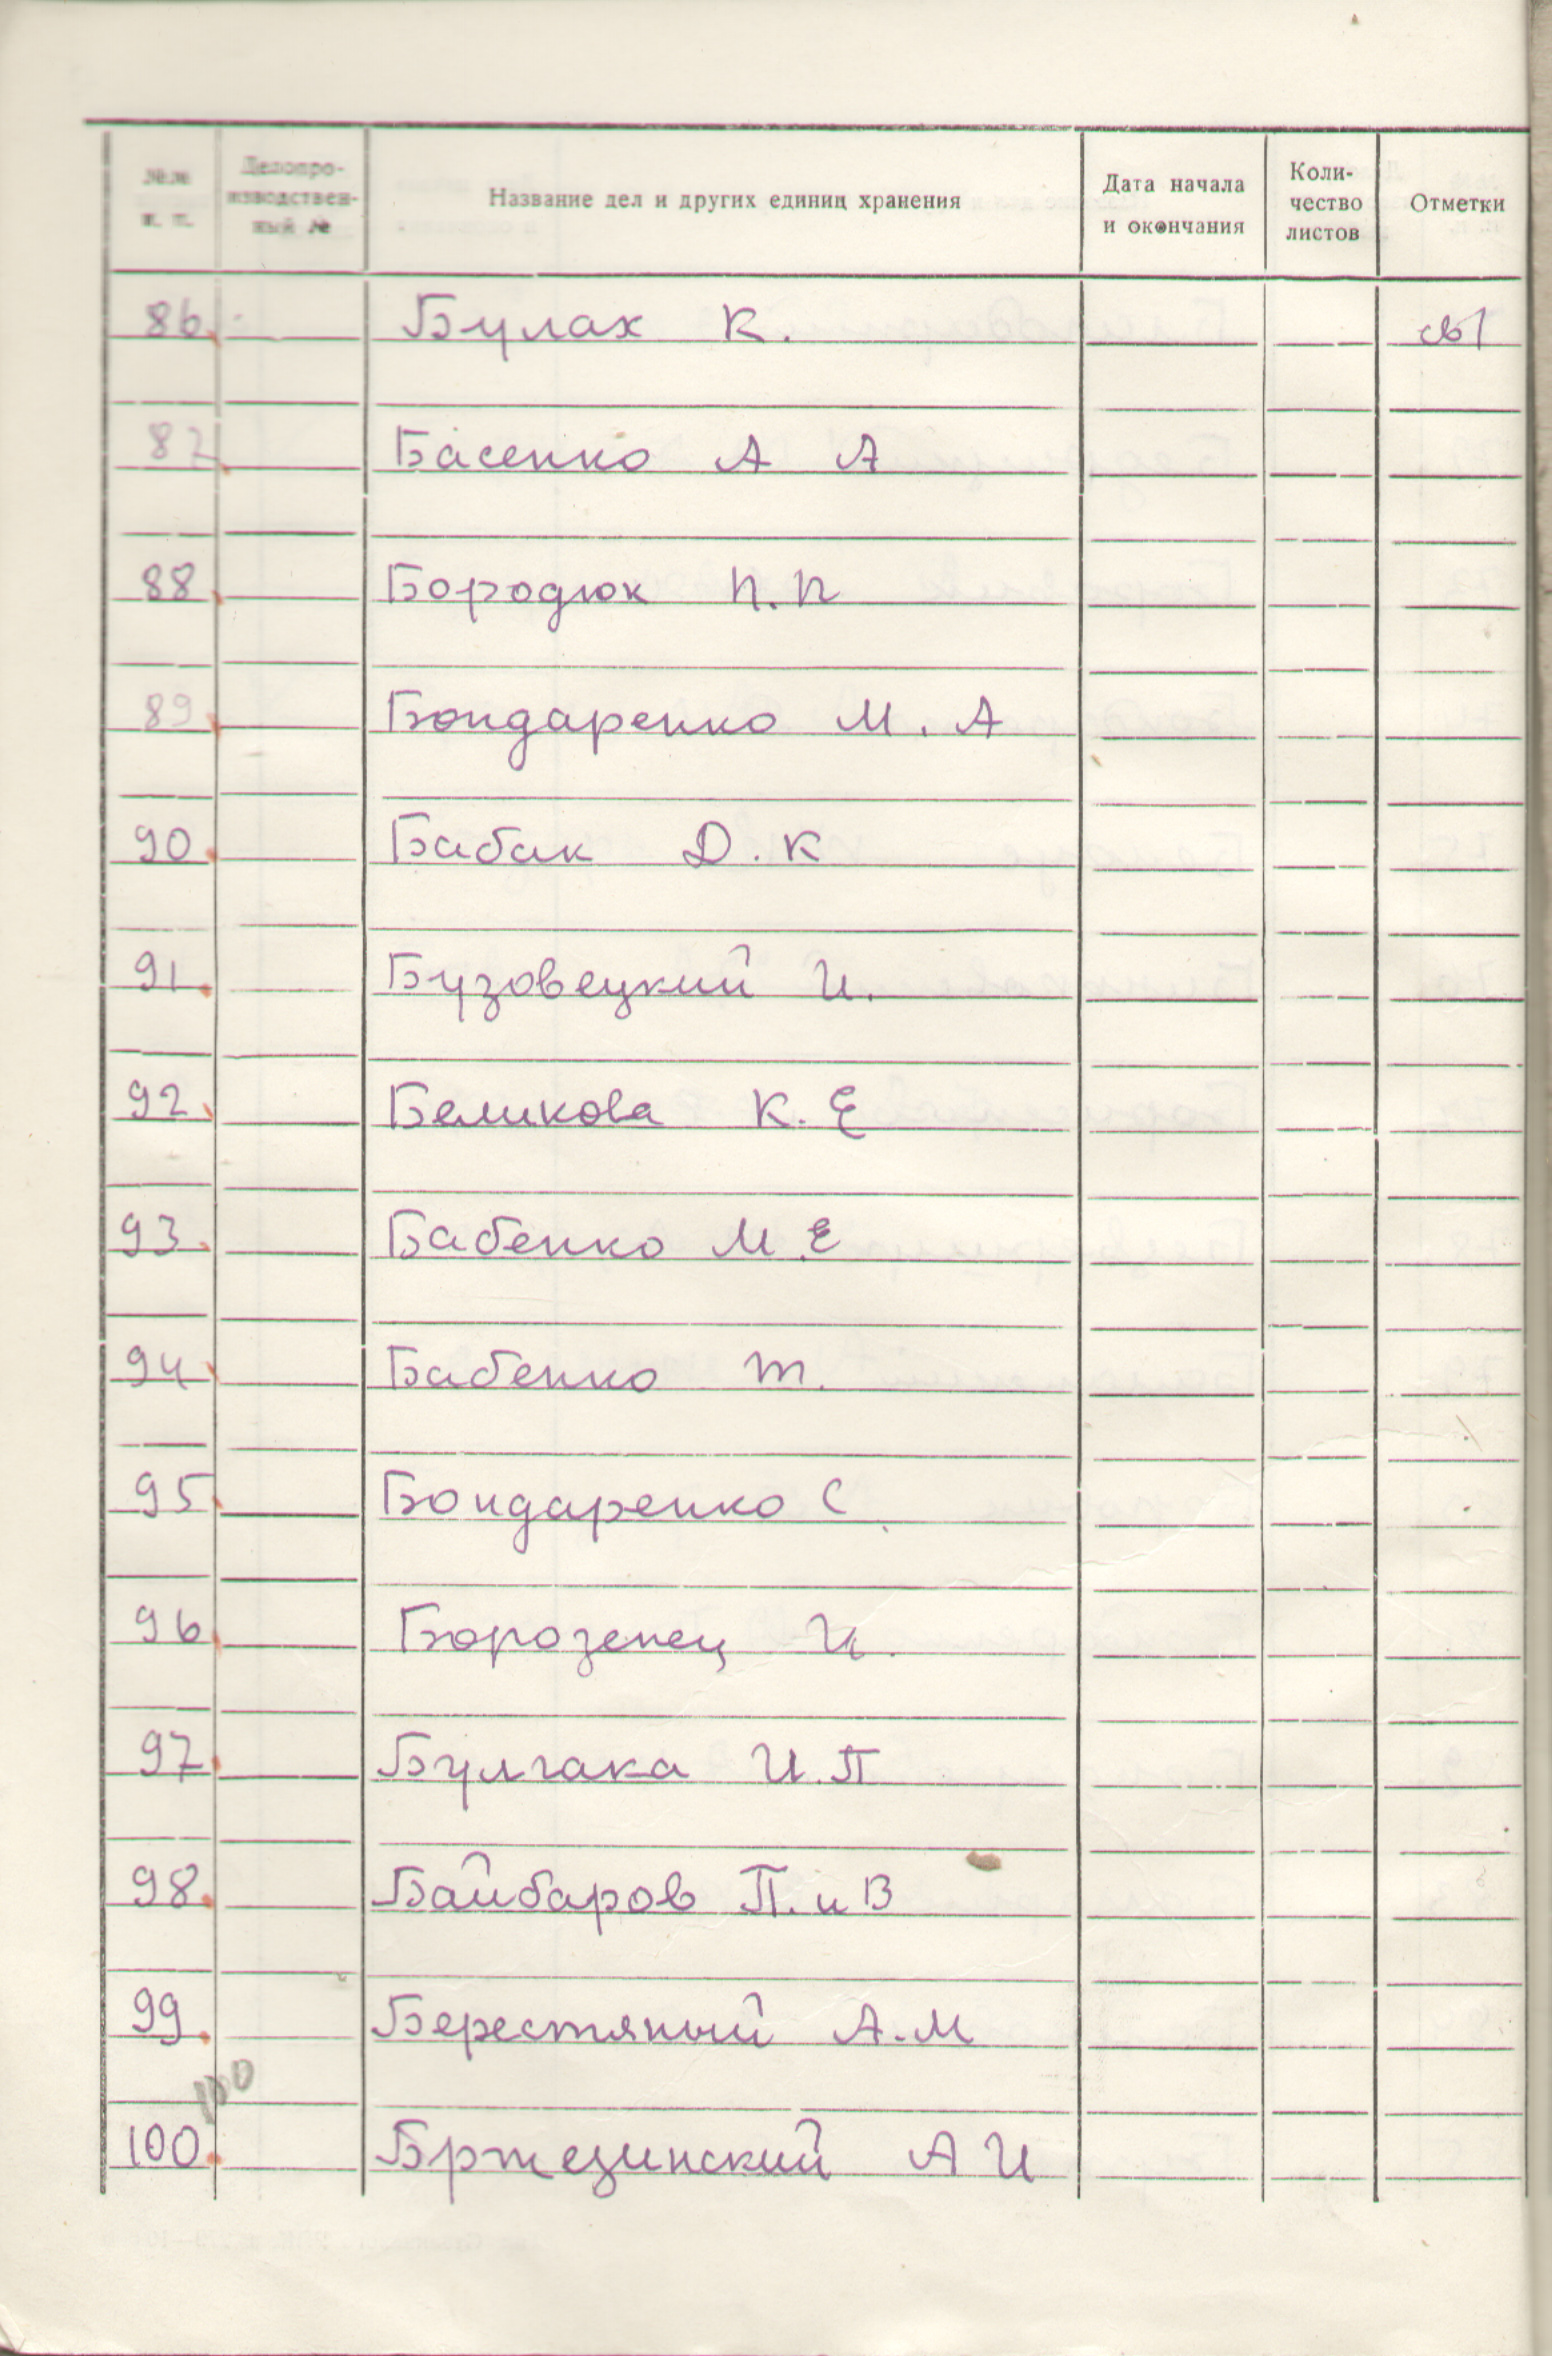 №№ п. п. Делопро-изводствен-ный № Название дел и других единиц хранения Дата начала и окончания Коли-чество листов Отметки
86. Булах К.
87. Басенко А А
88. Бородюк П.П
89. Бондаренко М.А
90. Бабак Д.К
91. Бузовецкий И.
92. Беликова К.Е
93. Бабенко М.Е
94. Бабенко Т.
95. Бондаренко С.
96. Борозенец И.
97. Булгака И.П
98. Байбаров П. и В
99. Берестяный А.М
100
100. Бржезинский А И